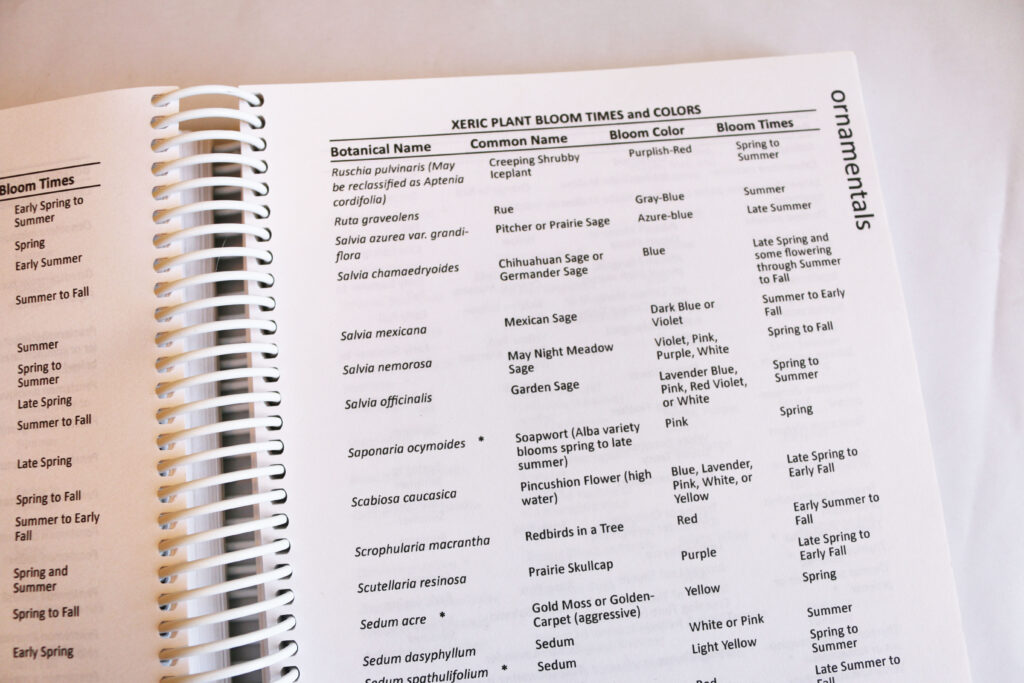 Bloom Times
Early Spring to
Summer
Spring
Early Summer
Summer to Fall
Summer
Spring to
Summer
Late Spring
Summer to Fall
Late Spring
Spring to Fall
Summer to Early
Fall
Spring and
Summer
Spring to Fall
Early Spring
ornamentals
XERIC PLANT BLOOM TIMES and COLORS
Botanical Name Common Name Bloom Color Bloom Times
Ruschia pulvinaris (May Creeping Shrubby Purplish-Red Spring to
be reclassified as Aptenia Iceplant Summer
cordifolia)
Ruta graveolens Rue Gray-Blue Summer
Salvia azurea var. grandi- Pitcher or Prairie Sage Azure-blue Late Summer
flora
Salvia chamaedryoides Chihuahuan Sage or Blue Late Spring and
Germander Sage some flowering
through Summer
to Fall
Salvia mexicana Mexican Sage Dark Blue or Summer to Early
Violet Fall
Salvia nemorosa May Night Meadow Violet, Pink, Spring to Fall
Sage Purple, White
Salvia officinalis Garden Sage Lavender Blue, Spring to
Pink, Red Violet, Summer
or White
Saponaria ocymoides * Soapwort (Alba variety Pink Spring
blooms spring to late
summer)
Scabiosa caucasica Pincushion Flower (high Blue, Lavender, Late Spring to
water) Pink, White, or Early Fall
Yellow
Scrophularia macrantha Redbirds in a Tree Red Early Summer to
Fall
Scutellaria resinosa Prairie Skullcap Purple Late Spring to
Early Fall
Sedum acre * Gold Moss or Golden- Yellow Spring
Carpet (aggressive)
Sedum dasyphyllum Sedum White or Pink Summer
Sedum spathulifolium * Sedum Light Yellow Spring to
Summer
Red Late Summer to
Fall